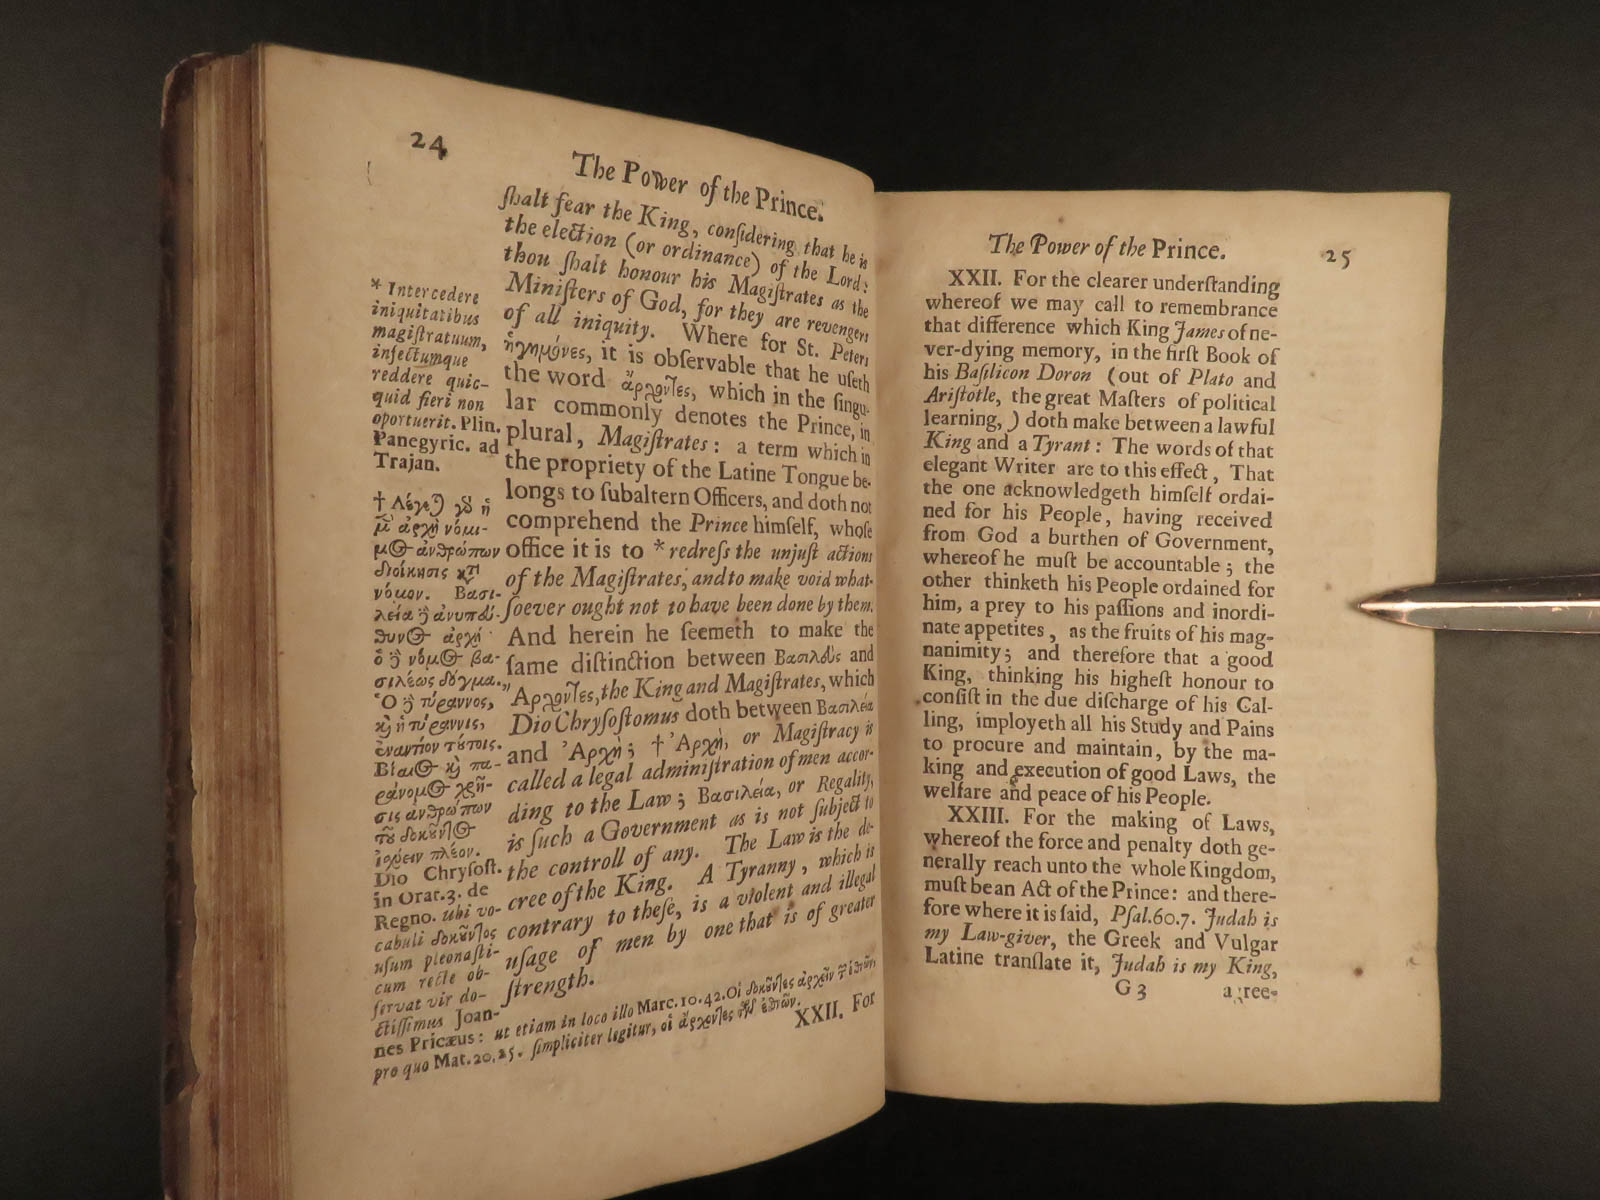 24
The Power of the Prince.
ſhalt fear the King, conſidering that he is
the election (or ordinance) of the Lord:
thou ſhalt honour his Magiſtrates as the
Miniſters of God, for they are revengers
of all iniquity. Where for St. Peters
ἡγεμόνες, it is obſervable that he uſeth
the word ἄρχοντες, which in the ſingu-
lar commonly denotes the Prince, in
plural, Magiſtrates: a term which in
the propriety of the Latine Tongue be-
longs to ſubaltern Officers, and doth not
comprehend the Prince himſelf, whoſe
office it is to * redreſs the unjuſt actions
of the Magiſtrates, and to make void what-
ſoever ought not to have been done by them.
And herein he ſeemeth to make the
ſame diſtinction between Βασιλεὺς and
Ἄρχοντες, the King and Magiſtrates, which
Dio Chryſoſtomus doth between Βασιλεία
and Ἀρχή; † Ἀρχὴ, or Magiſtracy is
called a legal adminiſtration of men accor-
ding to the Law; Βασιλεία, or Regality,
is ſuch a Government as is not ſubject to
the controll of any. The Law is the de-
cree of the King. A Tyranny, which is
contrary to theſe, is a violent and illegal
uſage of men by one that is of greater
ſtrength.
XXII. For
* Intercedere
iniquitatibus
magiſtratuum,
infectumque
reddere quic-
quid fieri non
oportuerit. Plin.
Panegyric. ad
Trajan.
† Λέγεται γὰρ ἡ
μὲν ἀρχὴ νόμι-
μος ἀνθρώπων
διοίκησις κατὰ
νόμον. Βασι-
λεία δὲ ἀνυπεύ-
θυνος ἀρχή·
ὁ δὲ νόμος βα-
σιλέως δόγμα.
Ὁ δὲ τύραννος,
καὶ ἡ τύραννις,
ἐναντίον τούτοις.
Βίαιος καὶ πα-
ράνομος χρῆ-
σις ἀνθρώπων
τοῦ δοκοῦντος
ἰσχύειν πλέον.
Dio Chryſoſt.
in Orat. 3. de
Regno. ubi vo-
cabuli δοκοῦντος
uſum pleonaſti-
cum recte ob-
ſervat vir do-
ctiſſimus Joan-
nes Pricæus: ut etiam in loco illo Marc. 10. 42. Οἱ δοκοῦντες ἄρχειν τῶν ἐθνῶν,
pro quo Mat. 20, 25. ſimpliciter legitur, οἱ ἄρχοντες τῶν ἐθνῶν.
The Power of the Prince.
25
XXII. For the clearer underſtanding
whereof we may call to remembrance
that difference which King James of ne-
ver-dying memory, in the firſt Book of
his Baſilicon Doron (out of Plato and
Ariſtotle, the great Maſters of political
learning,) doth make between a lawful
King and a Tyrant: The words of that
elegant Writer are to this effect, That
the one acknowledgeth himſelf ordai-
ned for his People, having received
from God a burthen of Government,
whereof he muſt be accountable; the
other thinketh his People ordained for
him, a prey to his paſſions and inordi-
nate appetites, as the fruits of his mag-
nanimity; and therefore that a good
King, thinking his higheſt honour to
conſiſt in the due diſcharge of his Cal-
ling, imployeth all his Study and Pains
to procure and maintain, by the ma-
king and execution of good Laws, the
welfare and peace of his People.
XXIII. For the making of Laws,
whereof the force and penalty doth ge-
nerally reach unto the whole Kingdom,
muſt be an Act of the Prince: and there-
fore where it is ſaid, Pſal. 60. 7. Judah is
my Law-giver, the Greek and Vulgar
Latine tranſlate it, Judah is my King,
G 3
agree-